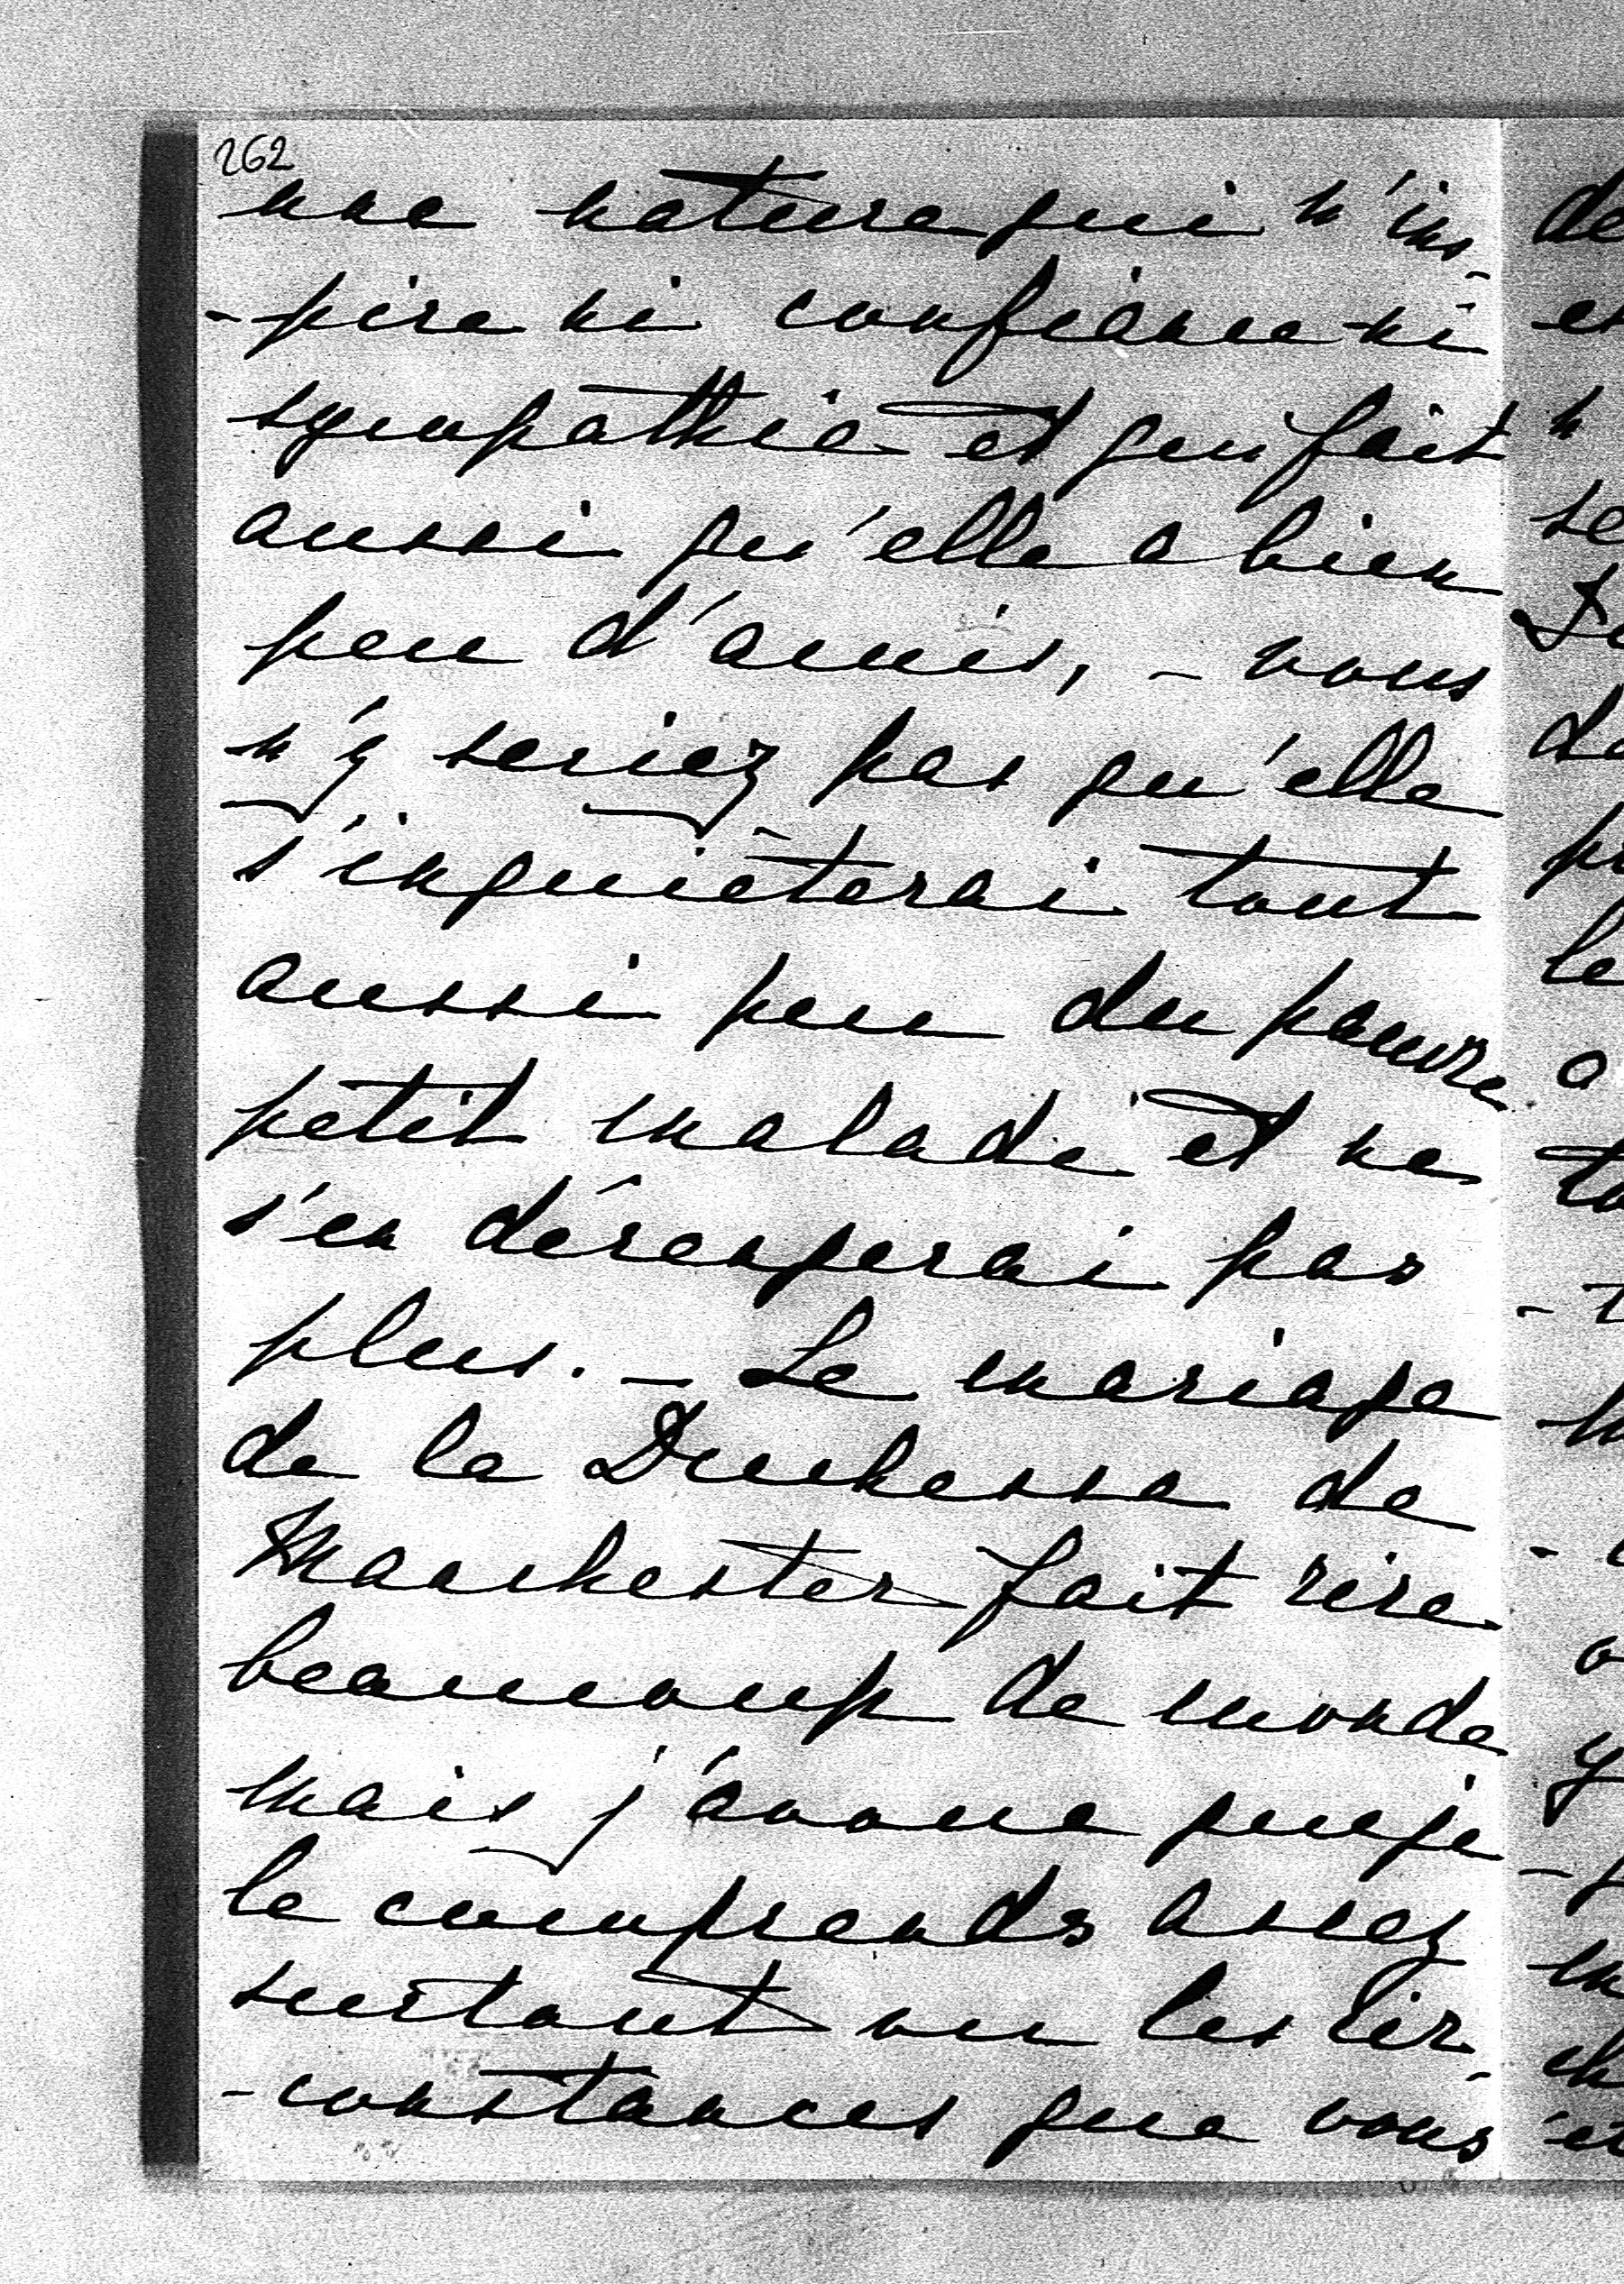 262
une nature qui n'ins-
-pire ni confiance ni
sympathie et qui fait
aussi qu'elle a bien
peu d'amis, - vous
n'y seriez pas qu'elle
s'inquièterai tout
aussi peu du pauvre
petit malade et ne
s'en dérangerai pas
plus. - Le mariage
de la Duchesse de
Manchester fait rire
beaucoup de monde
mais j'avoue que je
le comprends assez
surtout vu les cir-
-constances que vous